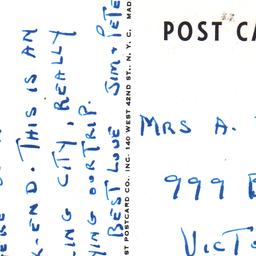 ERE
K-END. THIS IS AN
ING CITY, REALLY
YING OUR TRIP.
BEST LOVE JIM + PETE
ST POSTCARD CO., INC. 140 WEST 42ND ST., N. Y. C. MAD
POST CA
MRS A.
999
VICTO